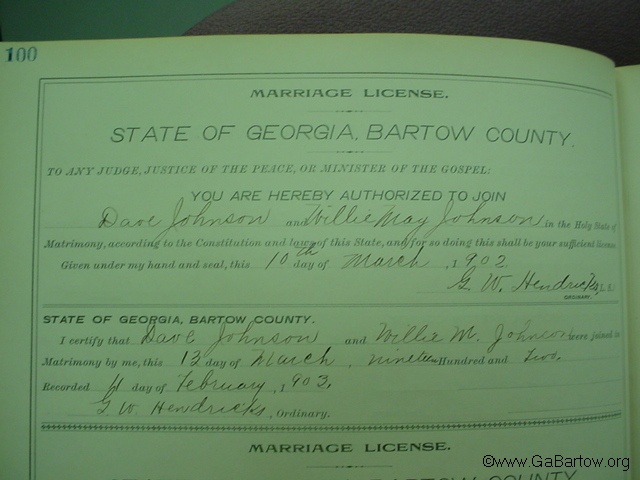 100
MARRIAGE LICENSE.
STATE OF GEORGIA, BARTOW COUNTY.
TO ANY JUDGE, JUSTICE OF THE PEACE, OR MINISTER OF THE GOSPEL:
YOU ARE HEREBY AUTHORIZED TO JOIN
Dave Johnson and Willie May Johnson in the Holy State of
Matrimony, according to the Constitution and laws of this State, and for so doing this shall be your sufficient license.
Given under my hand and seal, this 10th day of March, 1902
G. W. Hendricks, L. S.
ORDINARY.
STATE OF GEORGIA, BARTOW COUNTY.
I certify that Dave Johnson and Willie M. Johnson were joined in
Matrimony by me, this 13 day of March, nineteen Hundred and Two.
Recorded 4 day of February, 1903,
G. W. Hendricks, Ordinary.
MARRIAGE LICENSE.
BARTOW COUNTY
©www.GaBartow.org